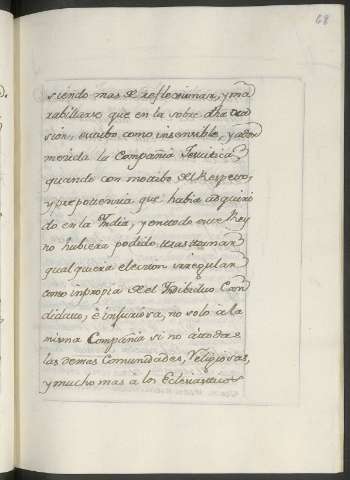 68
siendo mas de reflexionar, y ma
rabillarse que en la sobre dha oca
sion, estubo como insensible, y ador
mecida la Compañia Jesuitica
quando con motibo del Respeto,
y prepotencia que habia adquiri
do en la Yndia, y en todo este Rey
no hubiera podido trastornar
qualquiera eleccion irregular
como inpropia del Yndibiduo Can
didato, è injuriosa, no solo à la
misma Compañia si no à todas
las demas Comunidades, Religiosas,
y mucho mas à los Eclesiasticos